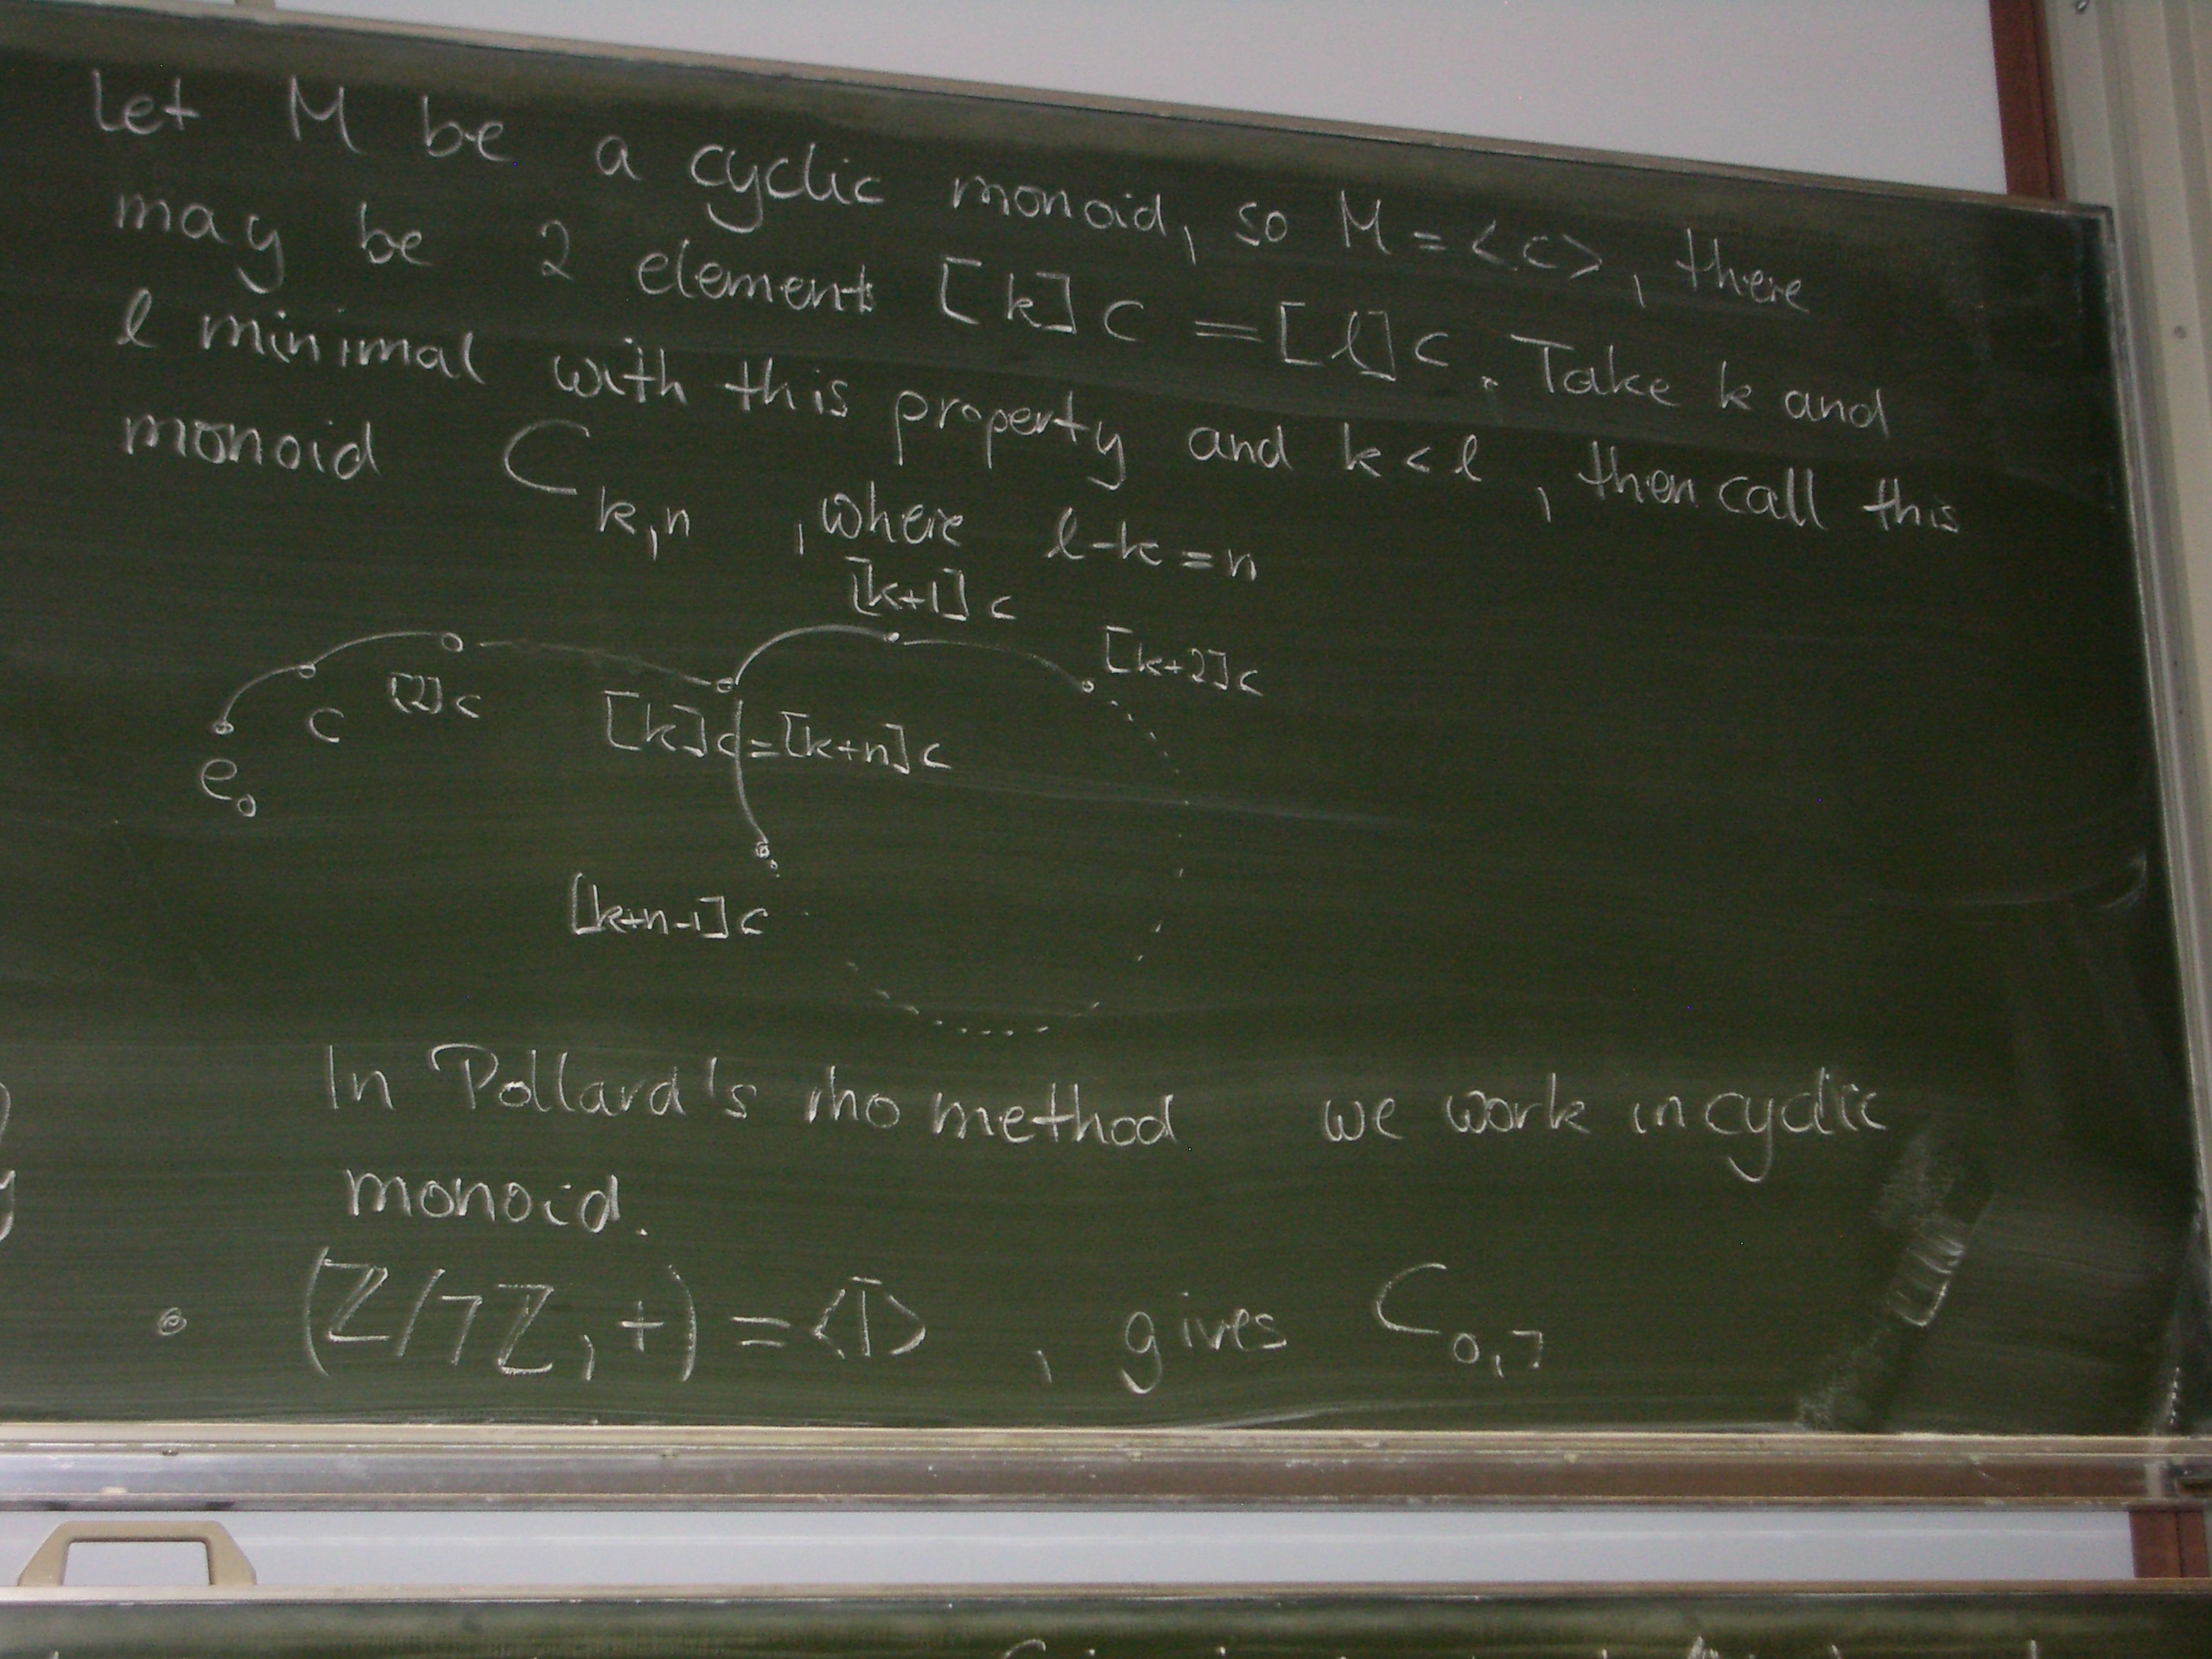 Let M be a cyclic monoid, so M = <c>, there
may be 2 element [k]c = [l]c. Take k and
l minimal with this property and k<l, then call this
monoid C_{k,n}, where l-k=n
[k+1]c
[k+2]c
[2]c
c
[k]c=[k+n]c
e_0
[k+n-1]c
In Pollard's rho method we work in cyclic
monoid.
• (Z/7Z, +) = <1̄>, gives C_{0,7}